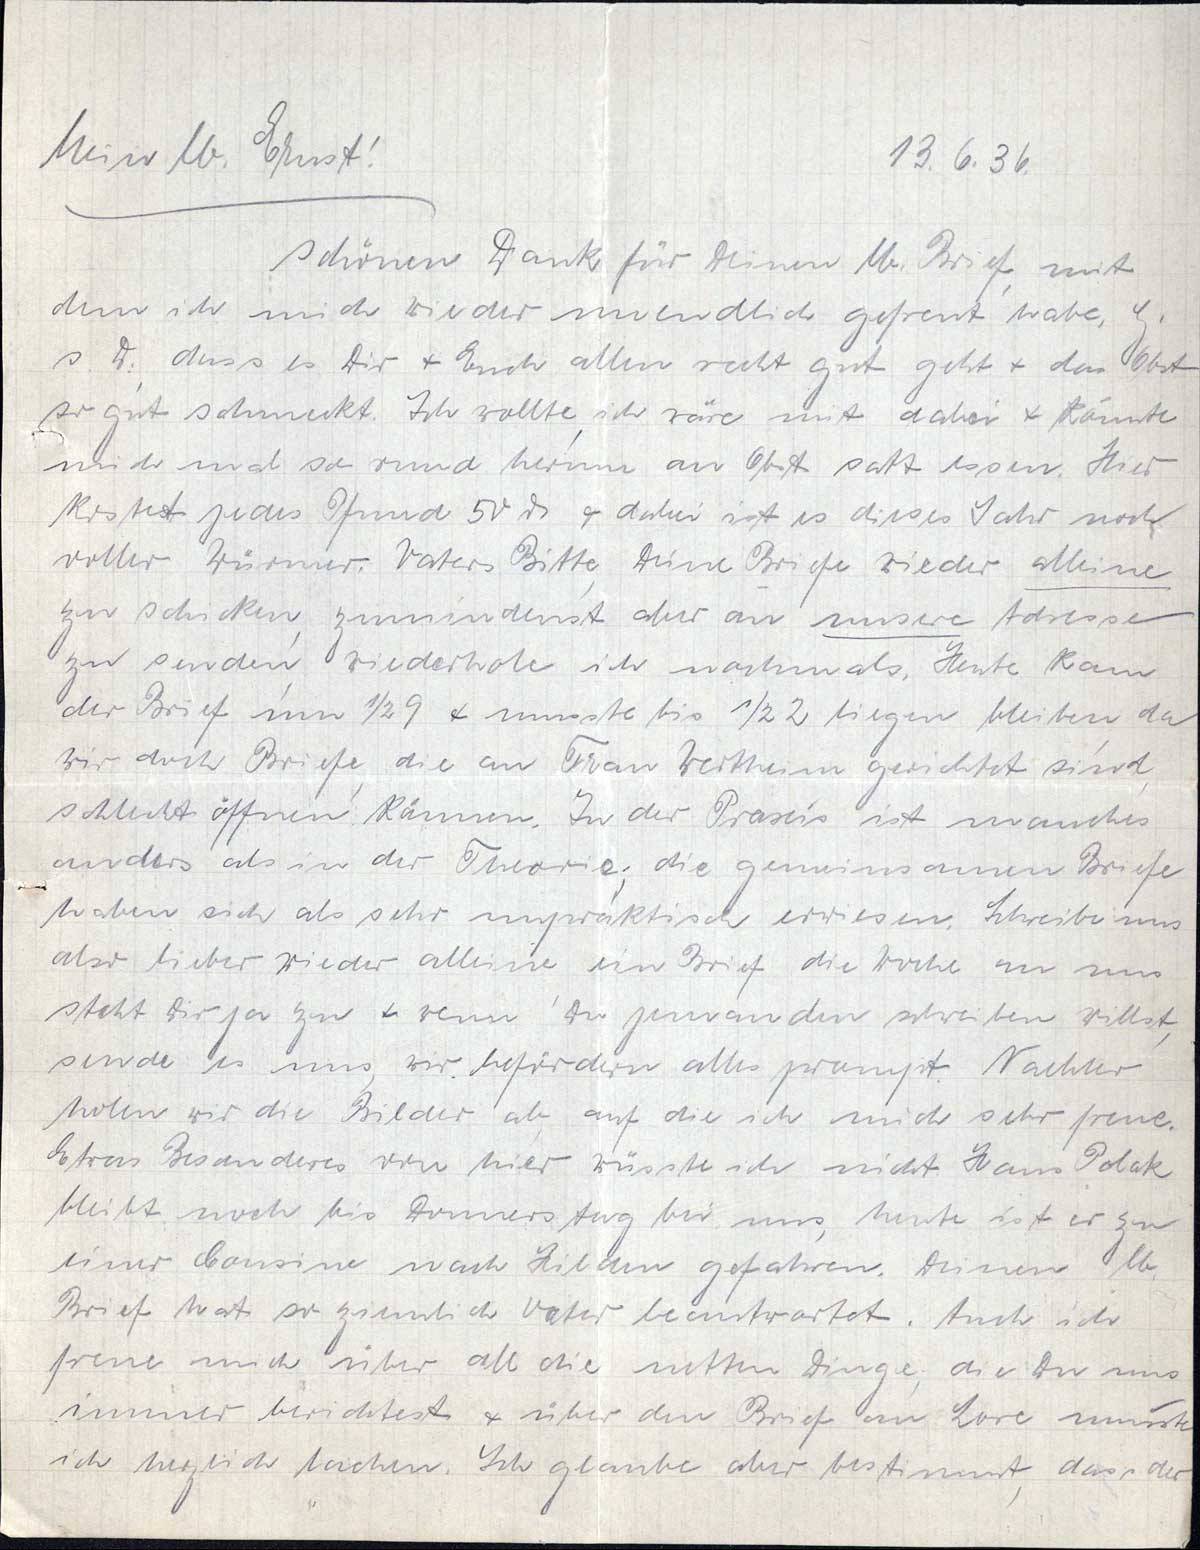 Mein lb. Ernst!
13.6.36.
schönen Dank für Deinen lb. Brief, mit
dem ich mich wieder unendlich gefreut habe. G.
s. D., dass es Dir + Euch allen recht gut geht + das Obst
so gut schmeckt. Ich wollte, ich wäre mit dabei + könnte
mich mal so rund herum an Obst satt essen. Hier
kostet jedes Pfund 50 & dabei ist es dieses Jahr noch
voller Würmer. Vaters Bitte, Deine Briefe wieder alleine
zu schicken, zumindenst aber an unsere Adresse
zu senden, wiederhole ich nochmals. Heute kam
der Brief um 1/2 9 + musste bis 1/2 2 liegen bleiben, da
wir doch Briefe, die an Frau Wertheim gerichtet sind,
schlecht öffnen können. In der Praxis ist manches
anders als in der Theorie; die gemeinsamen Briefe
haben sich als sehr unpraktisch erwiesen. Schreibe uns
also lieber wieder alleine ein Brief die Woche an uns
steht Dir ja zu + wenn Du jemanden schreiben willst,
sende es uns, wir befördern alles prompt. Nachher
holen wir die Bilder ab, auf die ich mich sehr freue.
Etwas Besonderes von hier wüsste ich nicht. Hans Polak
bleibt noch bis Donnerstag bei uns, heute ist er zu
einer Cousine nach Hilden gefahren. Deinen lb.
Brief hat so ziemlich Vater beantwortet. Auch ich
freue mich über all die netten Dinge, die Du uns
immer berichtest + über den Brief an Lore musste
ich herzlich lachen. Ich glaube aber bestimmt, dass der